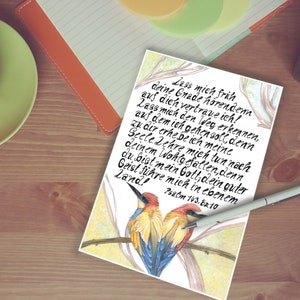 Lass mich früh
deine Gnade hören, denn
auf dich vertraue ich!
Lass mich den Weg erkennen,
auf dem ich gehen soll, denn
zu dir erhebe ich meine
Seele. Lehre mich tun nach
deinem Wohlgefallen, denn
du bist mein Gott; dein guter
Geist führe mich in ebenem
Land!
Psalm 143, 8+10